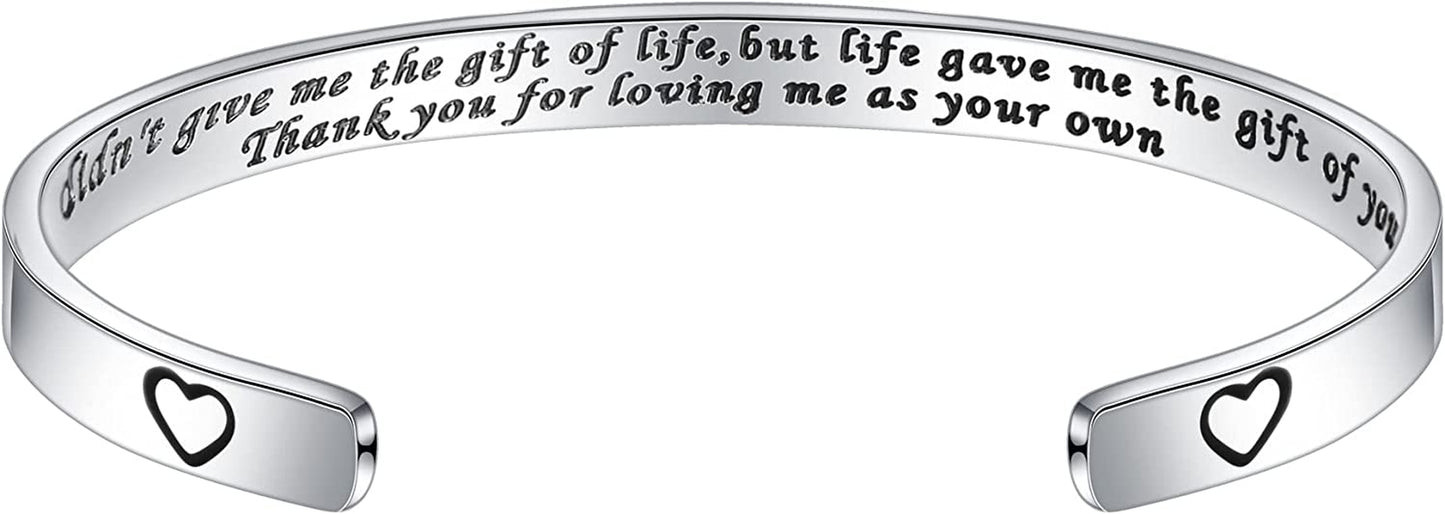 didn't give me the gift of life,but life gave me the gift of you
Thank you for loving me as your own